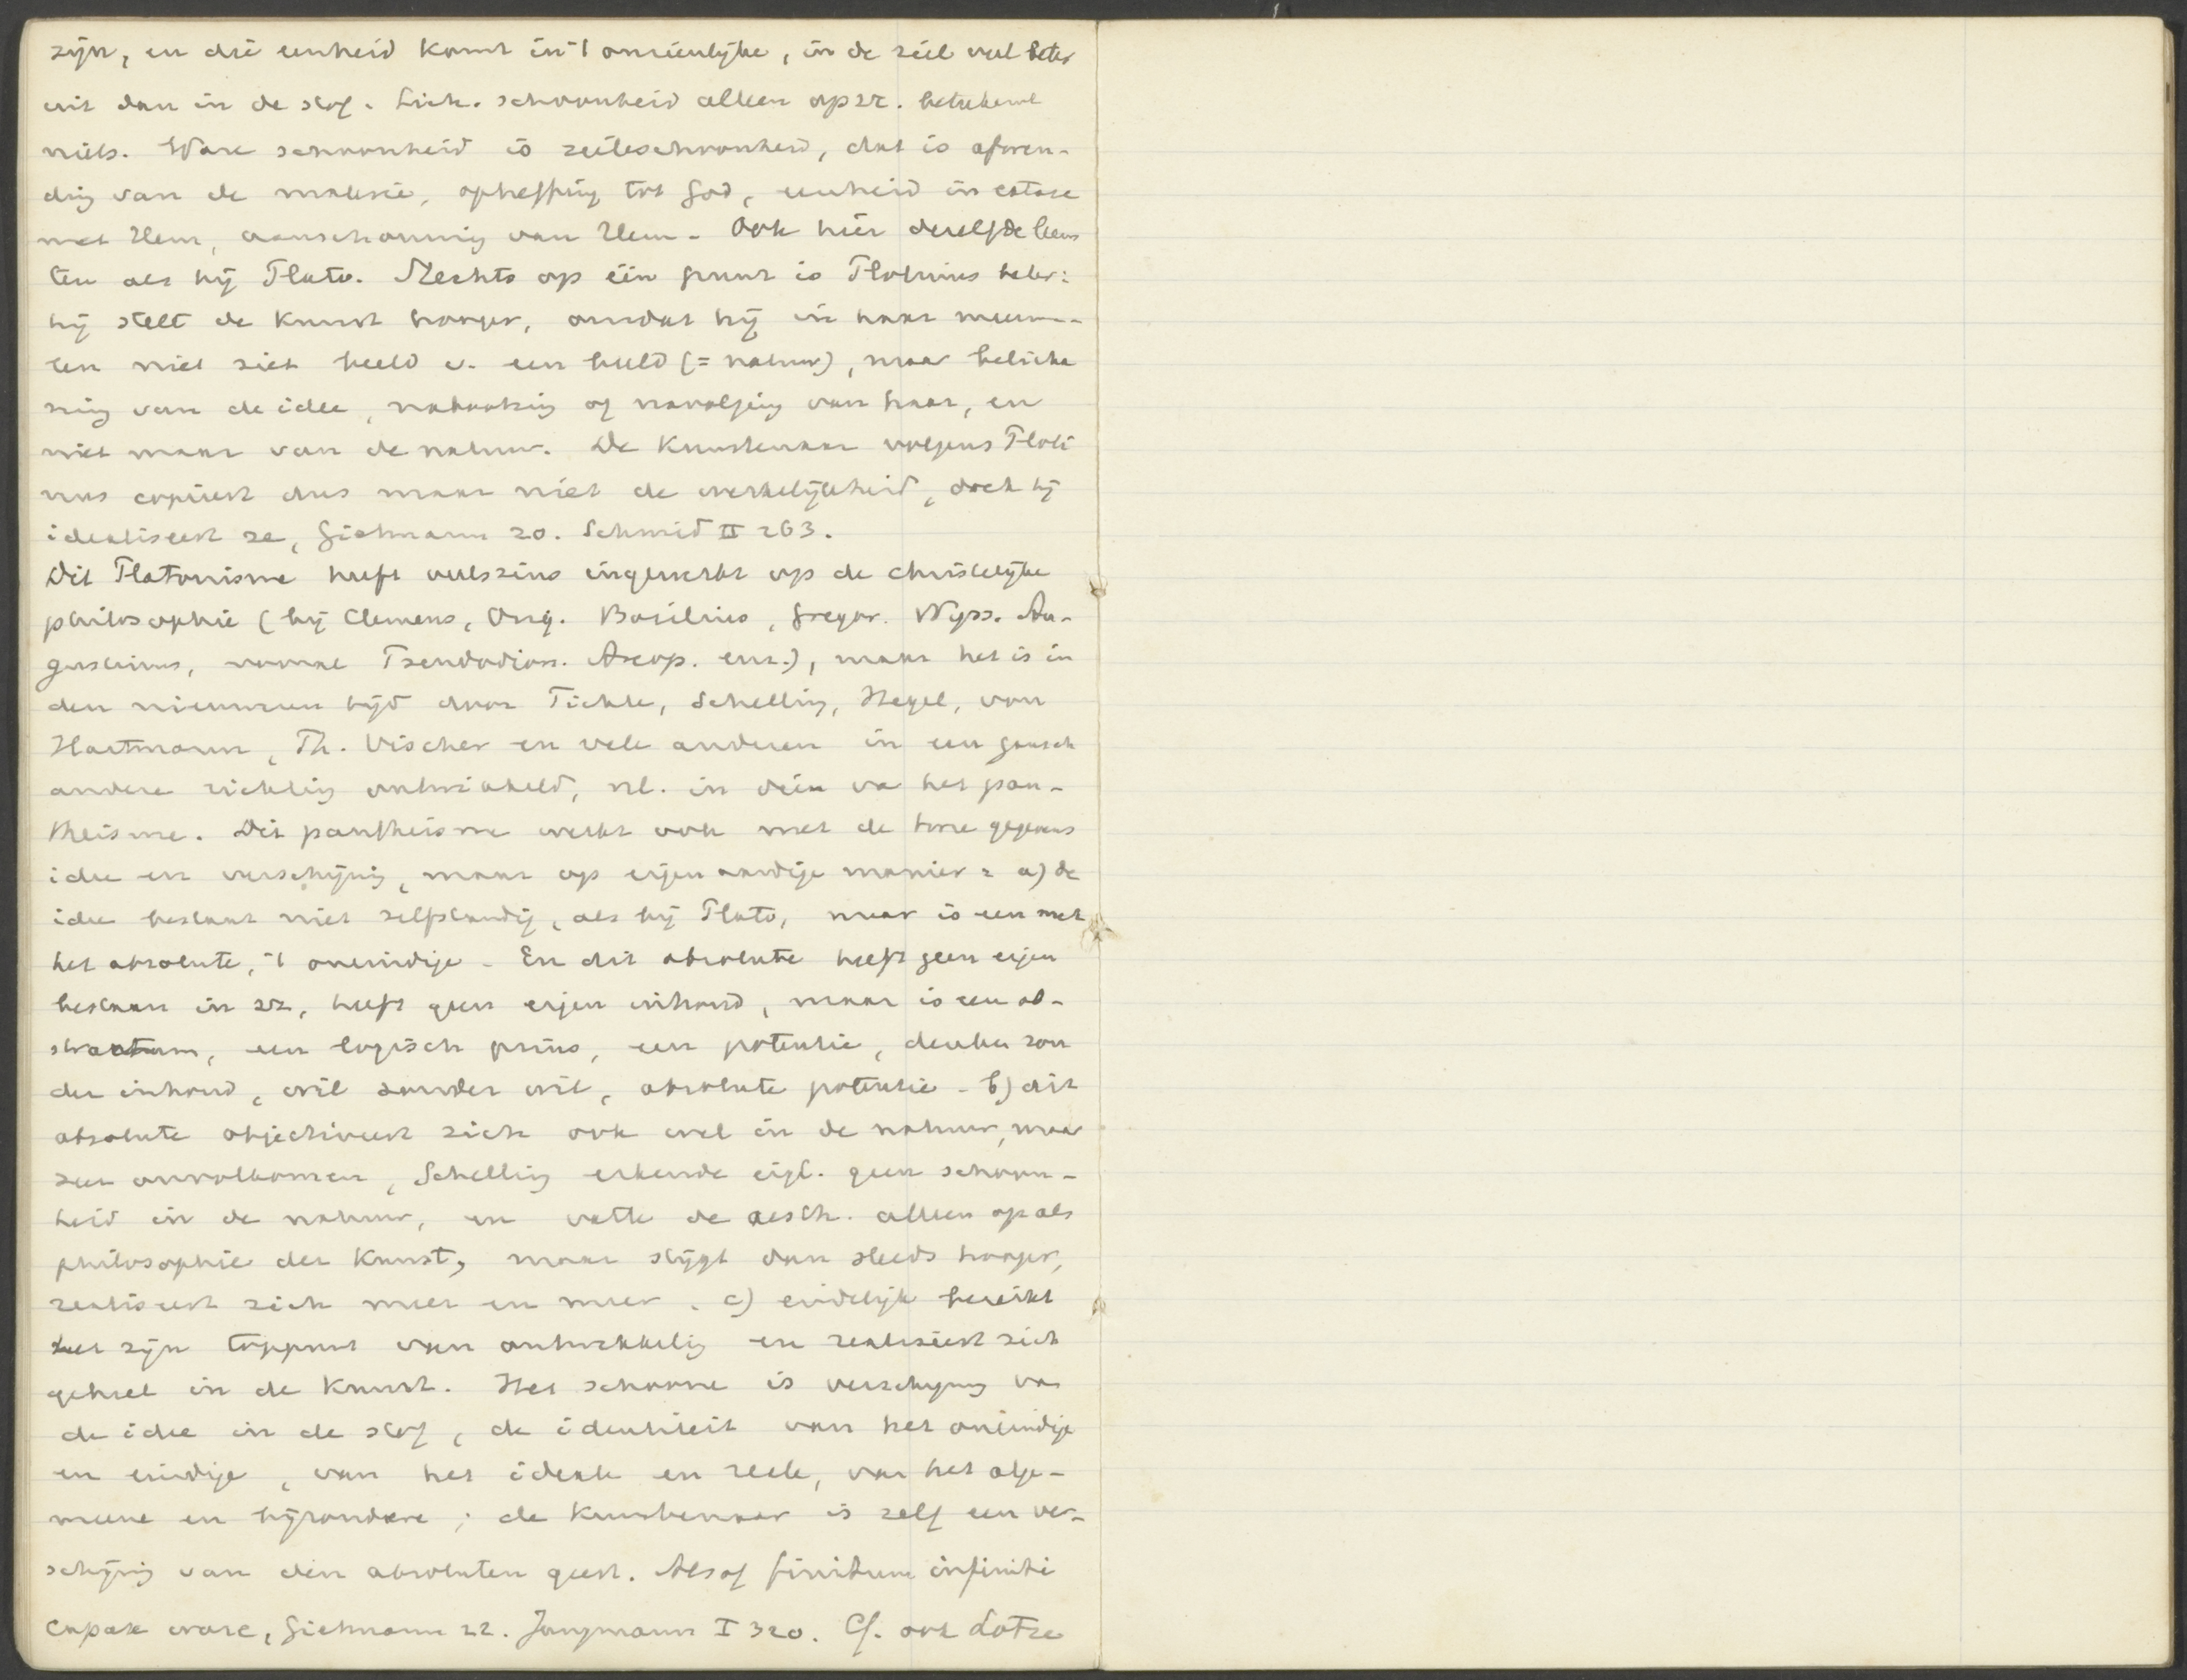 zijn, en die eenheid komt in 't onzienlijke, in de ziel veel beter
uit dan in de stof. Lich. schoonheid alleen op zz. beteekent
niets. Ware schoonheid is zieleschoonheid, dat is afwen-
ding van de materie, opheffing tot God, eenheid in extase
met Hem, aanschouwing van Hem. Ook hier dezelfde
als bij Plato. Slechts op één punt is Plotinus beter:
hij stelt de kunst hooger, omdat hij in haar
niet ziet beeld v. een beeld (= natuur), maar belicha
ming van de idee, nabootsing of navolging van haar, en
niet maar van de natuur. De Kunstenaar volgens Ploti
nus copieert dus maar niet de werkelijkheid, doch hij
idealiseert ze, Gietmann 20. Schmid II 263.
Dit Platonisme heeft veelszins ingewerkt op de christelijke
philosophie (bij Clemens, Orig. Basilius, Gregor. Nyss. Au-
gustinus, vooral Pseudodion. Areop. enz.), maar het is in
den nieuweren tijd door Fichte, Schelling, Hegel, von
Hartmann, Th. Vischer en vele anderen in een gansch
andere richting ontwikkeld, nl. in dien va het pan-
theisme. Dit pantheisme werkt ook met de twee gegevens
idee en verschijning, maar op eigenaardige manier: a) de
idee bestaat niet zelfstandig, als bij Plato, maar is een met
het absolute, 't oneindige. En dit absolute heeft geen eigen
bestaan in zz, heeft geen eigen inhoud, maar is een ab-
stractum, een logisch prius, een potentie, denken zon
der inhoud, wil zonder wil, absolute potentie. b) dit
absolute objectiveert zich ook wel in de natuur, maar
zeer onvolkomen, Schelling erkende eigl. geen schoon-
heid in de natuur, en vatte de aesth. alleen op als
philosophie der Kunst, maar stijgt dan steeds hooger,
realiseert zich meer en meer. c) eindelijk bereikt
het zijn toppunt van ontwikkeling en realiseert zich
geheel in de Kunst. Het schoone is verschijning va
de idee in de stof, de identiteit van het oneindige
en eindige, van het ideale en reele, van het alge-
meene en bijzondere; de Kunstenaar is zelf een ver-
schijning van den absoluten geest. Alsof finitum infiniti
capax ware, Gietmann 22. Jungmann I 320. Cf. ook Lotze